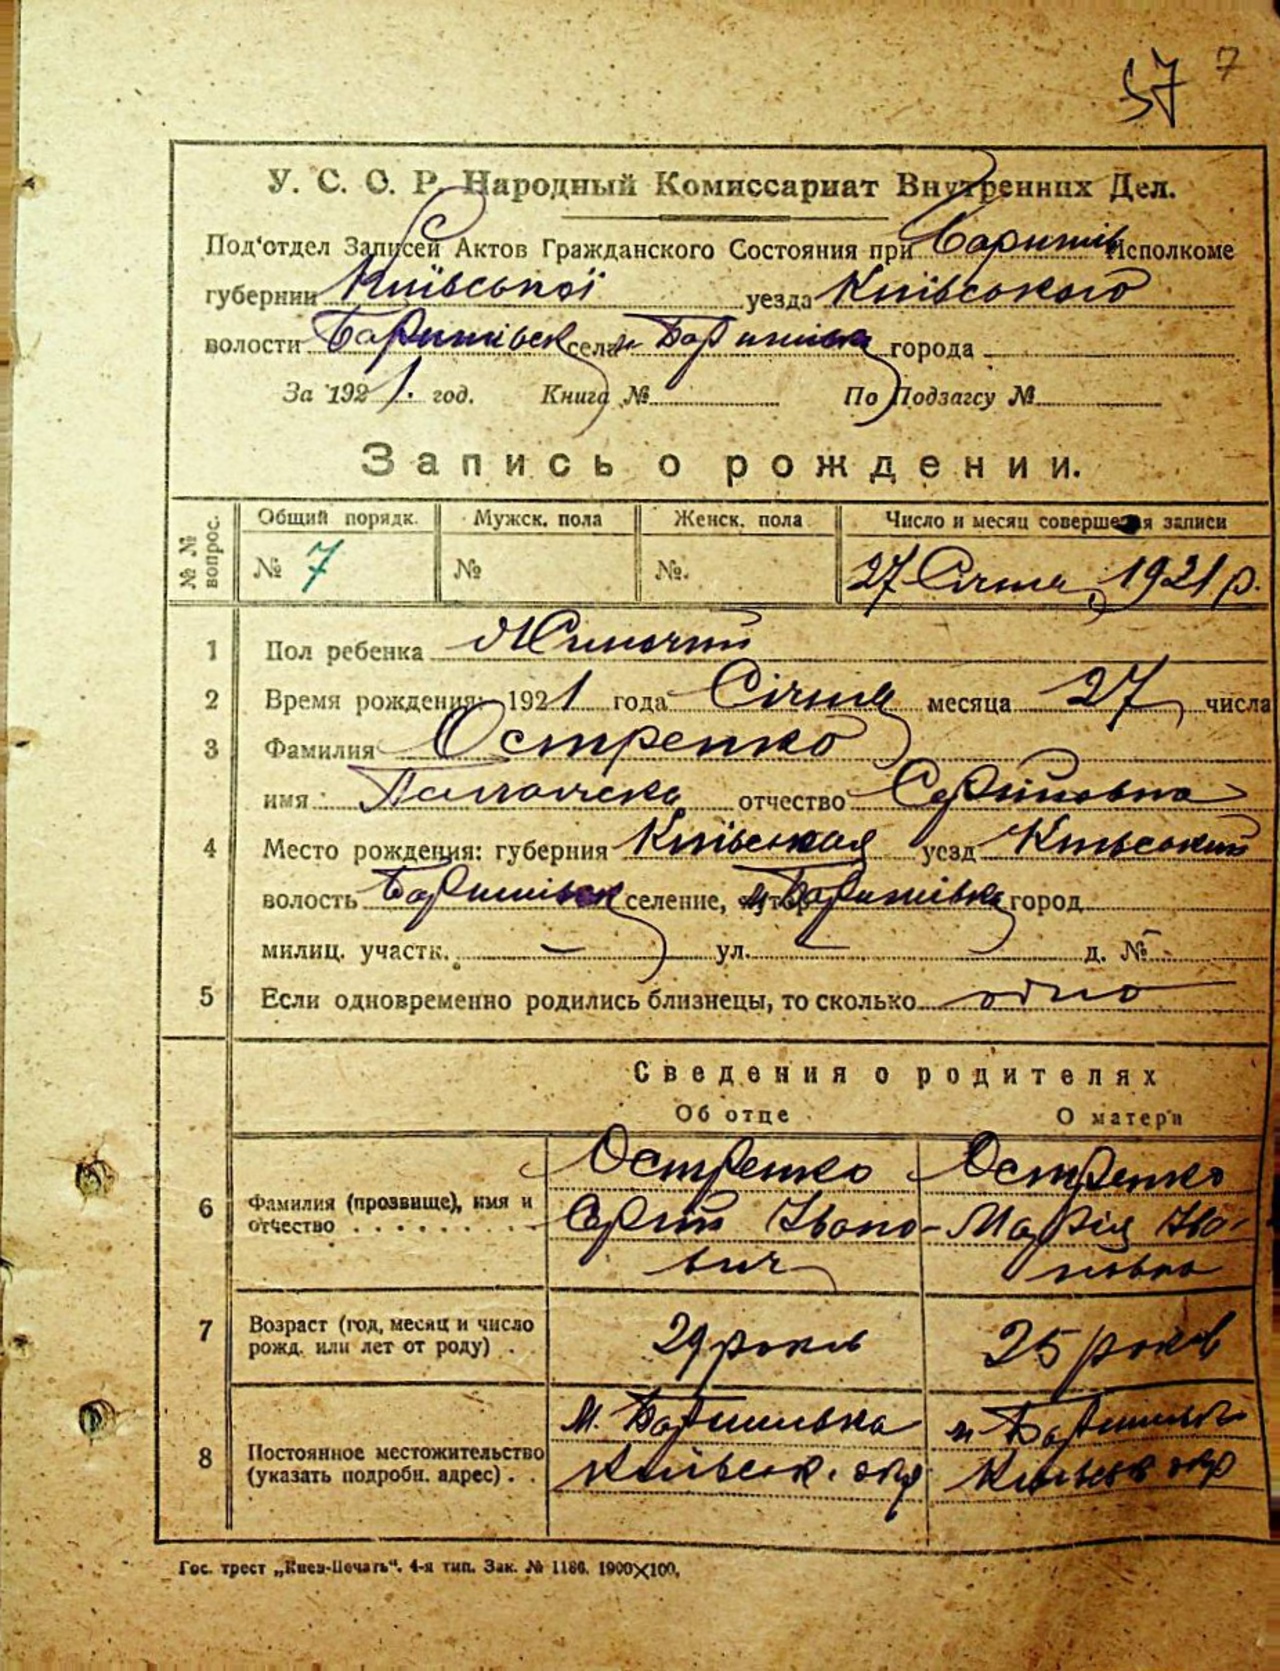 57 7
У. С. С. Р. Народный Комиссариат Внутренних Дел.
Под'отдел Записей Актов Гражданского Состояния при Баришів Исполкоме
губернии Київської уезда Київського
волости Баришівськ села м. Баришівка города
За 1921. год. Книга № По Подзагсу №
Запись о рождении.
№ № вопрос. Общий порядк. Мужск. пола Женск. пола Число и месяц совершения записи
№ 7 № №. 27 Січня, 1921 р.
1 Пол ребенка Жиночий
2 Время рождения: 1921 года Січня месяца 27 числа
3 Фамилия Остренко
имя отчество Сергійовна
4 Место рождения: губерния Київськая уезд Київський
волость Баришівськ селение, хутор м. Баришівка город
милиц. участк. — ул. — д. № —
5 Если одновременно родились близнецы, то сколько одно
Сведения о родителях
Об отце О матери
6 Фамилия (прозвище), имя и отчество . . . . . . . . Остренко Остренко
Сергій Івано- Марія Іва-
вич новна
7 Возраст (год, месяц и число рожд. или лет от роду) . . 29 років 25 років
8 Постоянное местожительство (указать подробн. адрес) . . м. Баришивка м. Баришивка
Київськ. окр Київськ окр
Гос. трест „Киев-Печать“. 4-я тип. Зак. № 1186. 1900×100,